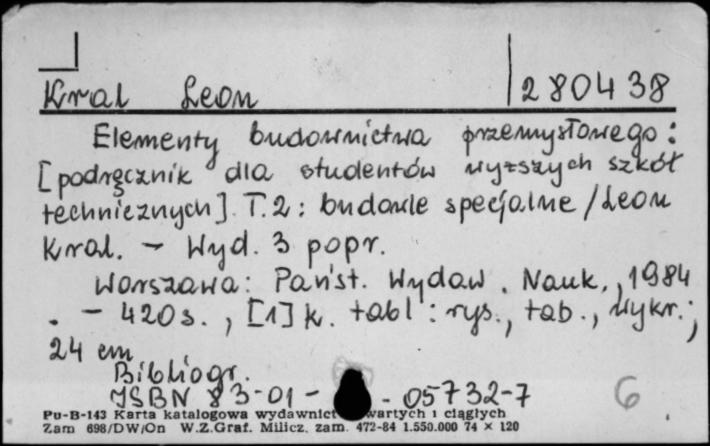 Kral Leon 280438
Elementy budownictwa przemysłowego:
[podręcznik dla studentów wyższych szkół
technicznych]. T.2: budowle specjalne / Leon
Kral. - Wyd. 3 popr.
Warszawa: Państ. Wydaw. Nauk., 1984
. - 420 s., [1] k. tabl : rys., tab., wykr.;
24 cm
Bibliogr.
ISBN 83-01- - 05732-7 6
Pu-B-143 Karta katalogowa wydawnict wartych i ciągłych
Zam 698/DW/On W.Z.Graf. Milicz. zam. 472-84 1.550.000 74 × 120